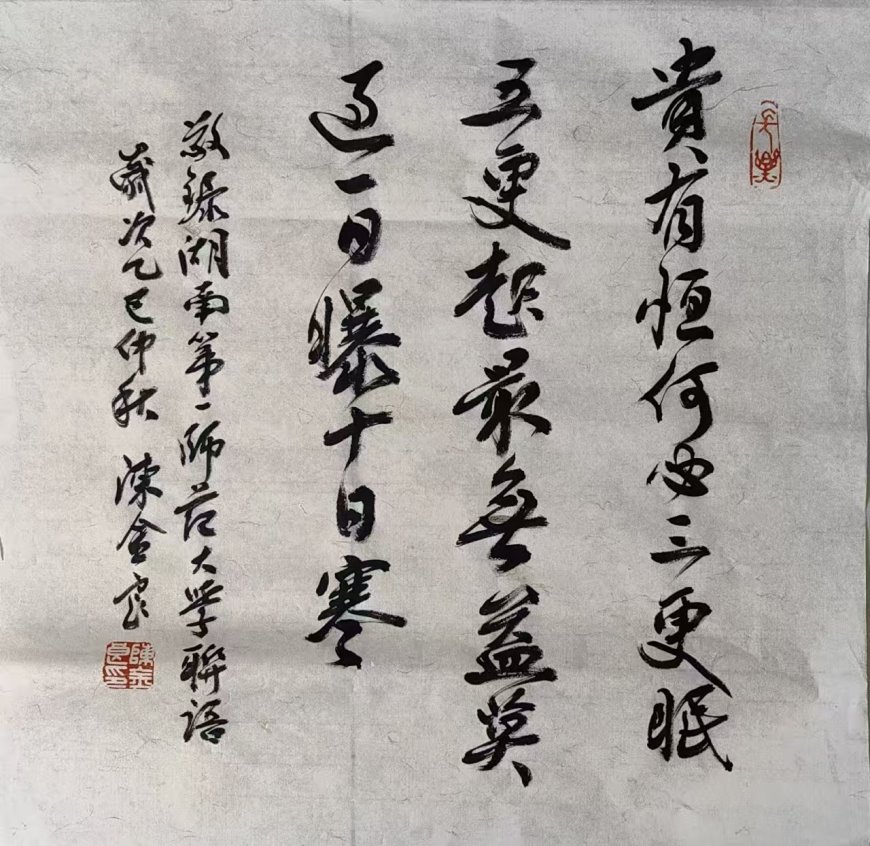 貴有恒何必三更眠
五更起最無益莫
過一日曝十日寒
敬録湖南第一師范大学聯語
歲次乙巳仲秋 陳金良
陳金良印